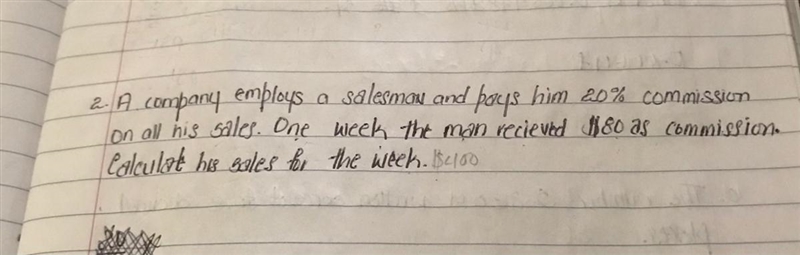 2. A company employs a salesman and pays him 20% commission
on all his sales. One week the man recieved $80 as commission.
Calculat his sales for the week. $400